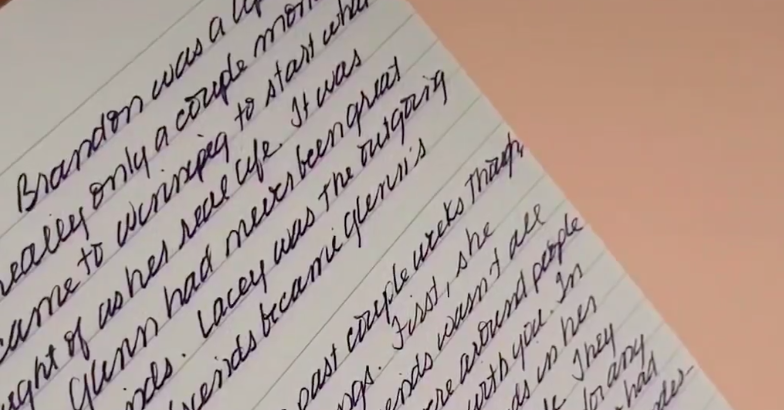 Brandon was a
really only a couple mon
came to winning to start wha
ught of as her real life. It was
Glenn had never been great
nds. Lacey was the outgoing
iends became Glenn's
past couple weeks though,
ngs. First, she
ends wasn't all
ere around people
with you. In
ds in her
They
for any
had